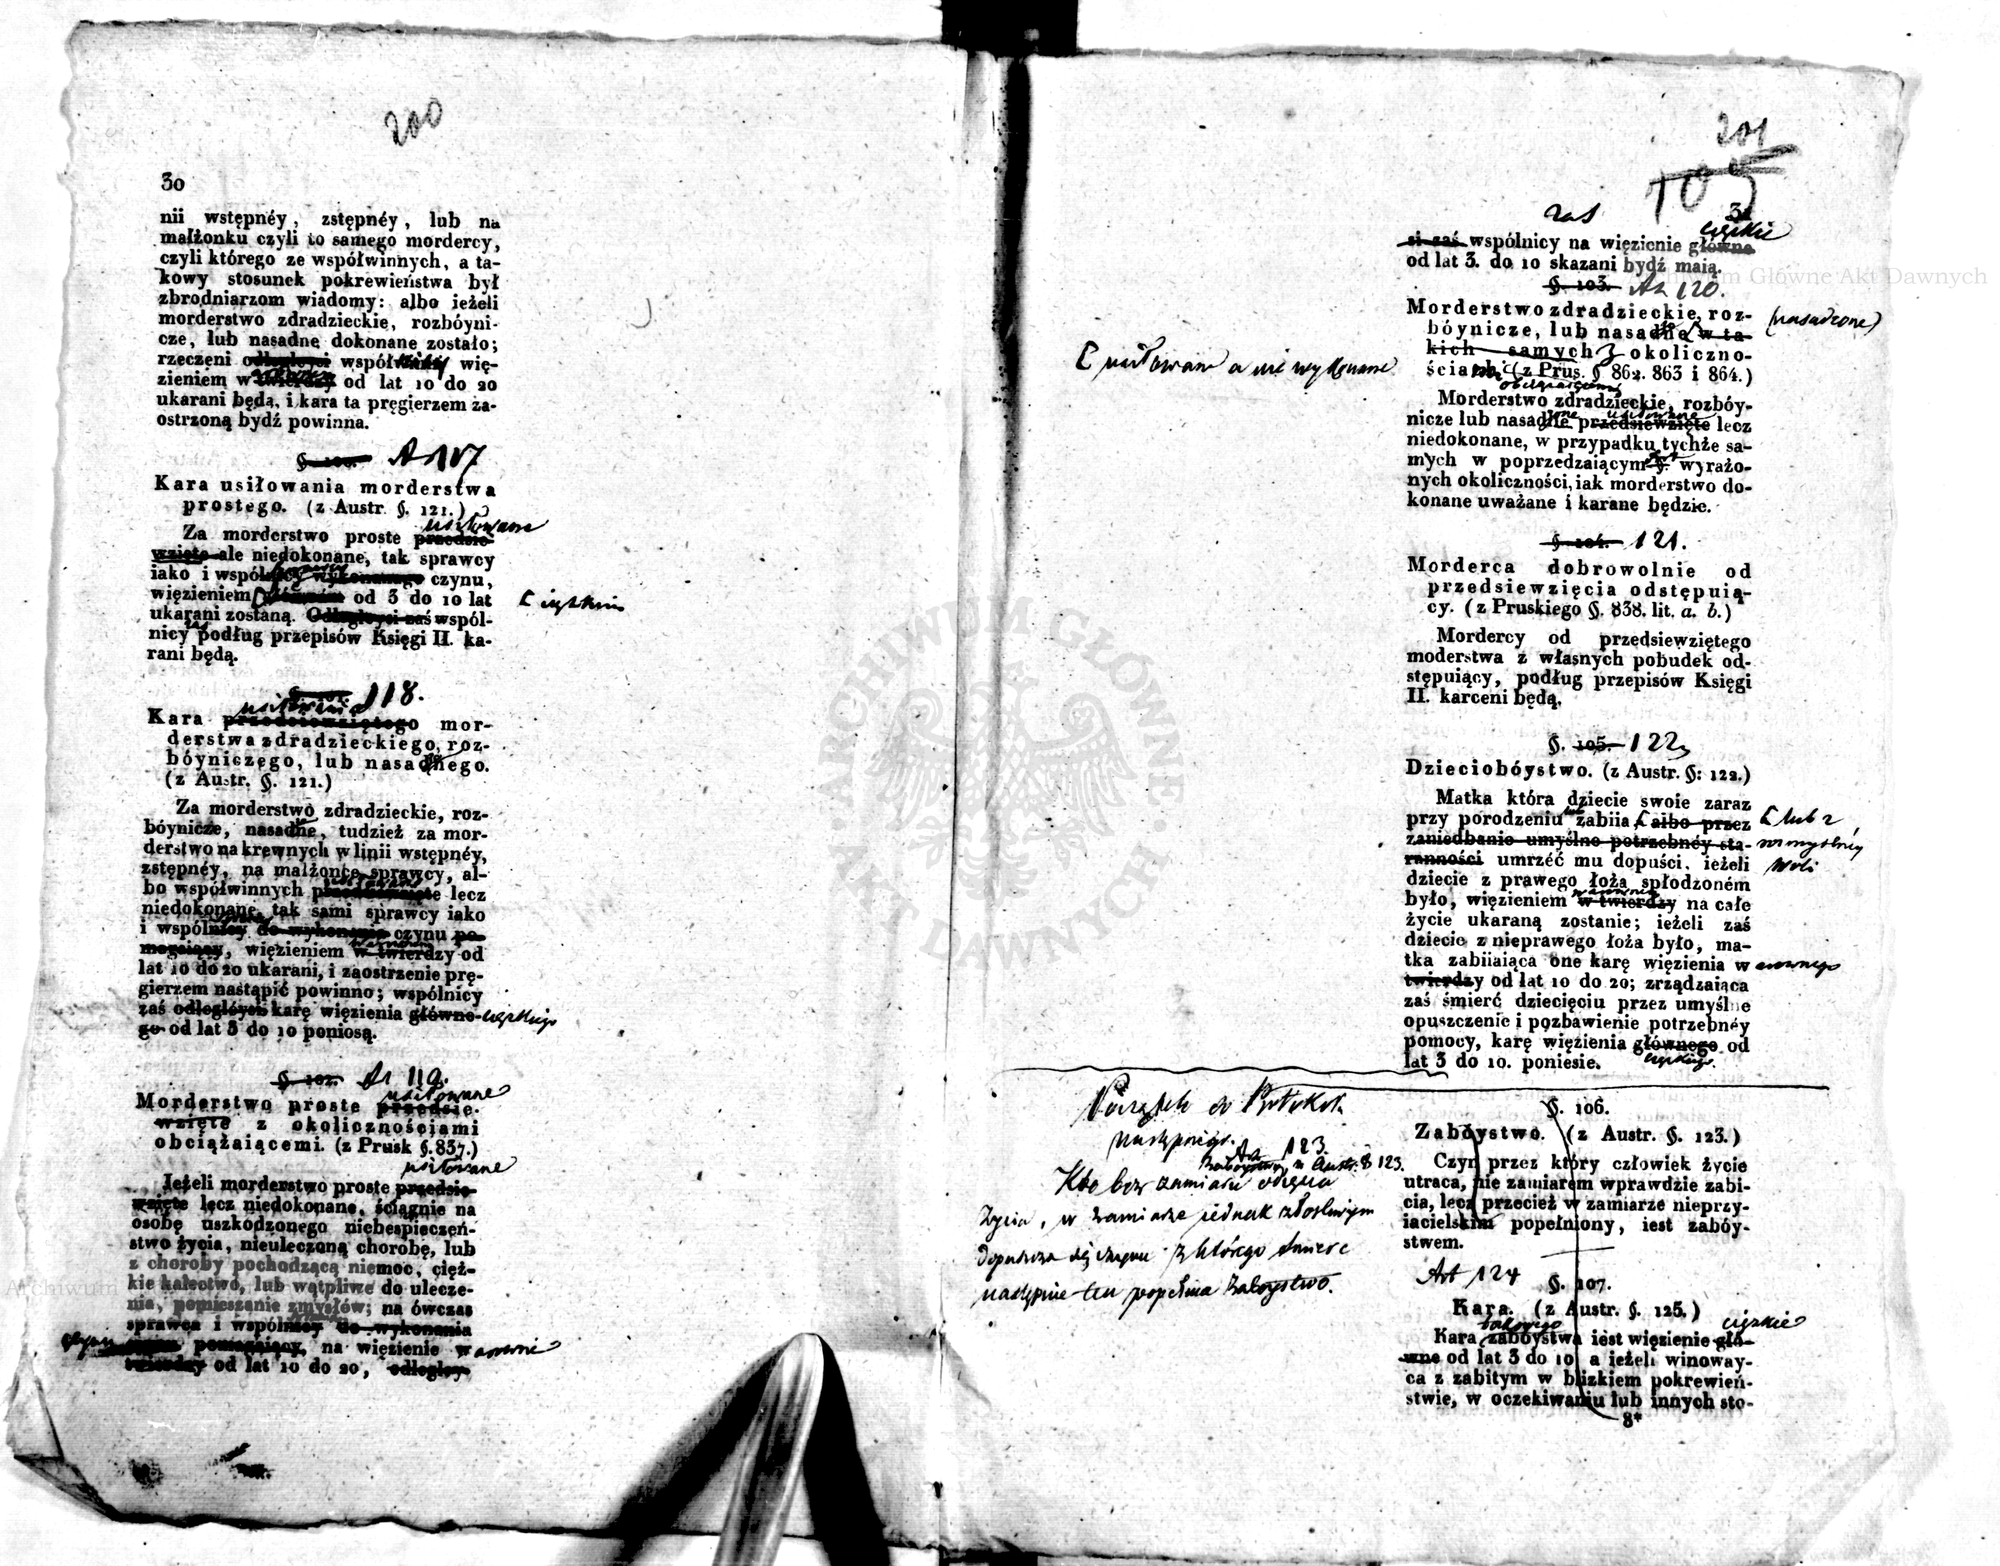 200
30
nii wstępnéy, zstępnéy, lub na
małżonku czyli to samego mordercy,
czyli którego ze współwinnych, a ta-
kowy stosunek pokrewieństwa był
zbrodniarzom wiadomy: albo ieżeli
morderstwo zdradzieckie, rozbóyni-
cze, lub nasadne dokonane zostało;
rzeczeni odlegleysi współ wię-
zieniem w twierdzy od lat 10 do 20
ukarani będą, i kara ta pręgierzem za-
ostrzoną bydź powinna.
§. 100. Ar 117
Kara usiłowania morderstwa
prostego. (z Austr. §. 121.)
usiłowane
Za morderstwo proste przedsie-
wzięte ale niedokonane, tak sprawcy
iako i wspólnicy wykonanego czynu,
więzieniem główném od 3 do 10 lat [ ciężkim
ukarani zostaną. Odlegleysi zaś wspól-
zaś
nicy podług przepisów Księgi II. ka-
rani będą.
118.
usiłowania
Kara przedsiewziętego mor-
derstwa zdradzieckiego, roz-
bóyniczego, lub nasadnego.
(z Austr. §. 121.)
Za morderstwo zdradzieckie, roz-
bóynicze, nasadne, tudzież za mor-
derstwo na krewnych w linii wstępnéy,
zstępnéy, na małżonce sprawcy, al-
usiłowane
bo współwinnych przedsiewzięte lecz
niedokonane, tak sami sprawcy iako
i wspólnicy do wykonania czynu po-
warowném
magaiący, więzieniem w twierdzy od
lat 10 do 20 ukarani, i zaostrzenie prę-
gierzem nastąpić powinno; wspólnicy
zaś odlegléysi karę więzienia główne- ciężkiego
go od lat 3 do 10 poniosą.
§. 102. Ar 119.
usiłowane
Morderstwo proste przedsie-
wzięte z okolicznościami
obciążaiącemi. (z Prusk §. 837.)
usiłowane
Jeżeli morderstwo proste przedsie-
wzięte lecz niedokonane, ściągnie na
osobę uszkodzonego niebespieczeń-
stwo życia, nieuleczoną chorobę, lub
z choroby pochodzącą niemoc, cięż-
kie kalectwo, lub wątpliwe do ulecze-
nia, pomieszanie zmysłów; na ówczas
sprawca i wspólnicy do wykonania
czynu pomagaiący, na więzienie w arowne
twierdzy od lat 10 do 20, odlegley-
201
105
31
zaś ciężkie
si zaś wspólnicy na więzienie główne
od lat 3. do 10 skazani bydź maią.
§. 103. Ar 120.
Morderstwo zdradzieckie, roz- (nasadzone)
bóynicze, lub nasadne [ w ta-
kich samych okoliczno- [ usiłowane a nie wykonane
ściach (z Prus. § 862. 863 i 864.)
obciążaiącemi
Morderstwo zdradzieckie, rozbóy-
usiłowane
nicze lub nasadne przedsiewzięte lecz
niedokonane, w przypadku tychże sa-
mych w poprzedzaiącym §. wyrażo-
nych okoliczności, iak morderstwo do-
konane uważane i karane będzie.
§. 104. 121.
Morderca dobrowolnie od
przedsiewzięcia odstępuią-
cy. (z Pruskiego §. 838. lit. a. b.)
Mordercy od przedsiewziętego
moderstwa z własnych pobudek od-
stępuiący, podług przepisów Księgi
II. karceni będą.
§. 105. 122
Dzieciobóystwo. (z Austr. §: 122.)
Matka która dziecie swoie zaraz
przy porodzeniu zabiia, [ albo przez [ lub z
zaniedbanie umyślne potrzebnéy sta- umyślnéy
ranności umrzéć mu dopuści, ieżeli woli
dziecie z prawego łoża spłodzoném
warowném
było, więzieniem w twierdzy na całe
życie ukaraną zostanie; ieżeli zaś
dziecie z nieprawego łoża było, ma-
tka zabiiaiąca one karę więzienia w arownego
twierdzy od lat 10 do 20; zrządzaiąca
zaś śmierć dziecięciu przez umyślne
opuszczenie i pozbawienie potrzebnéy
pomocy, karę więzienia głównego od
ciężkiego.
lat 3 do 10. poniesie.
następnego.
Ar 123.
Zaboystwo, z Austr. § 123.
Kto bez zamiaru odięcia
życia, w zamiarze iednak złośliwym
dopuszcza się czynu z którego śmierć
nastąpnie ten popełnia Zaboystwo.
§. 106.
Zabóystwo. (z Austr. §. 123.)
Czyn przez który człowiek życie
utraca, nie zamiarem wprawdzie zabi-
cia, lecz przecież w zamiarze nieprzy-
iacielskim popełniony, iest zabóy-
stwem.
Art 124 §. 107.
Kara. (z Austr. §. 125.)
ciężkie
Kara zabóystwa iest więzienie głó-
wne od lat 3 do 10, a ieżeli winoway-
ca z zabitym w blizkiem pokrewień-
stwie, w oczekiwaniu lub innych sto-
8*
ARCHIWUM GŁÓWNE AKT DAWNYCH
Archiwum Główne Akt Dawnych
Archiwum